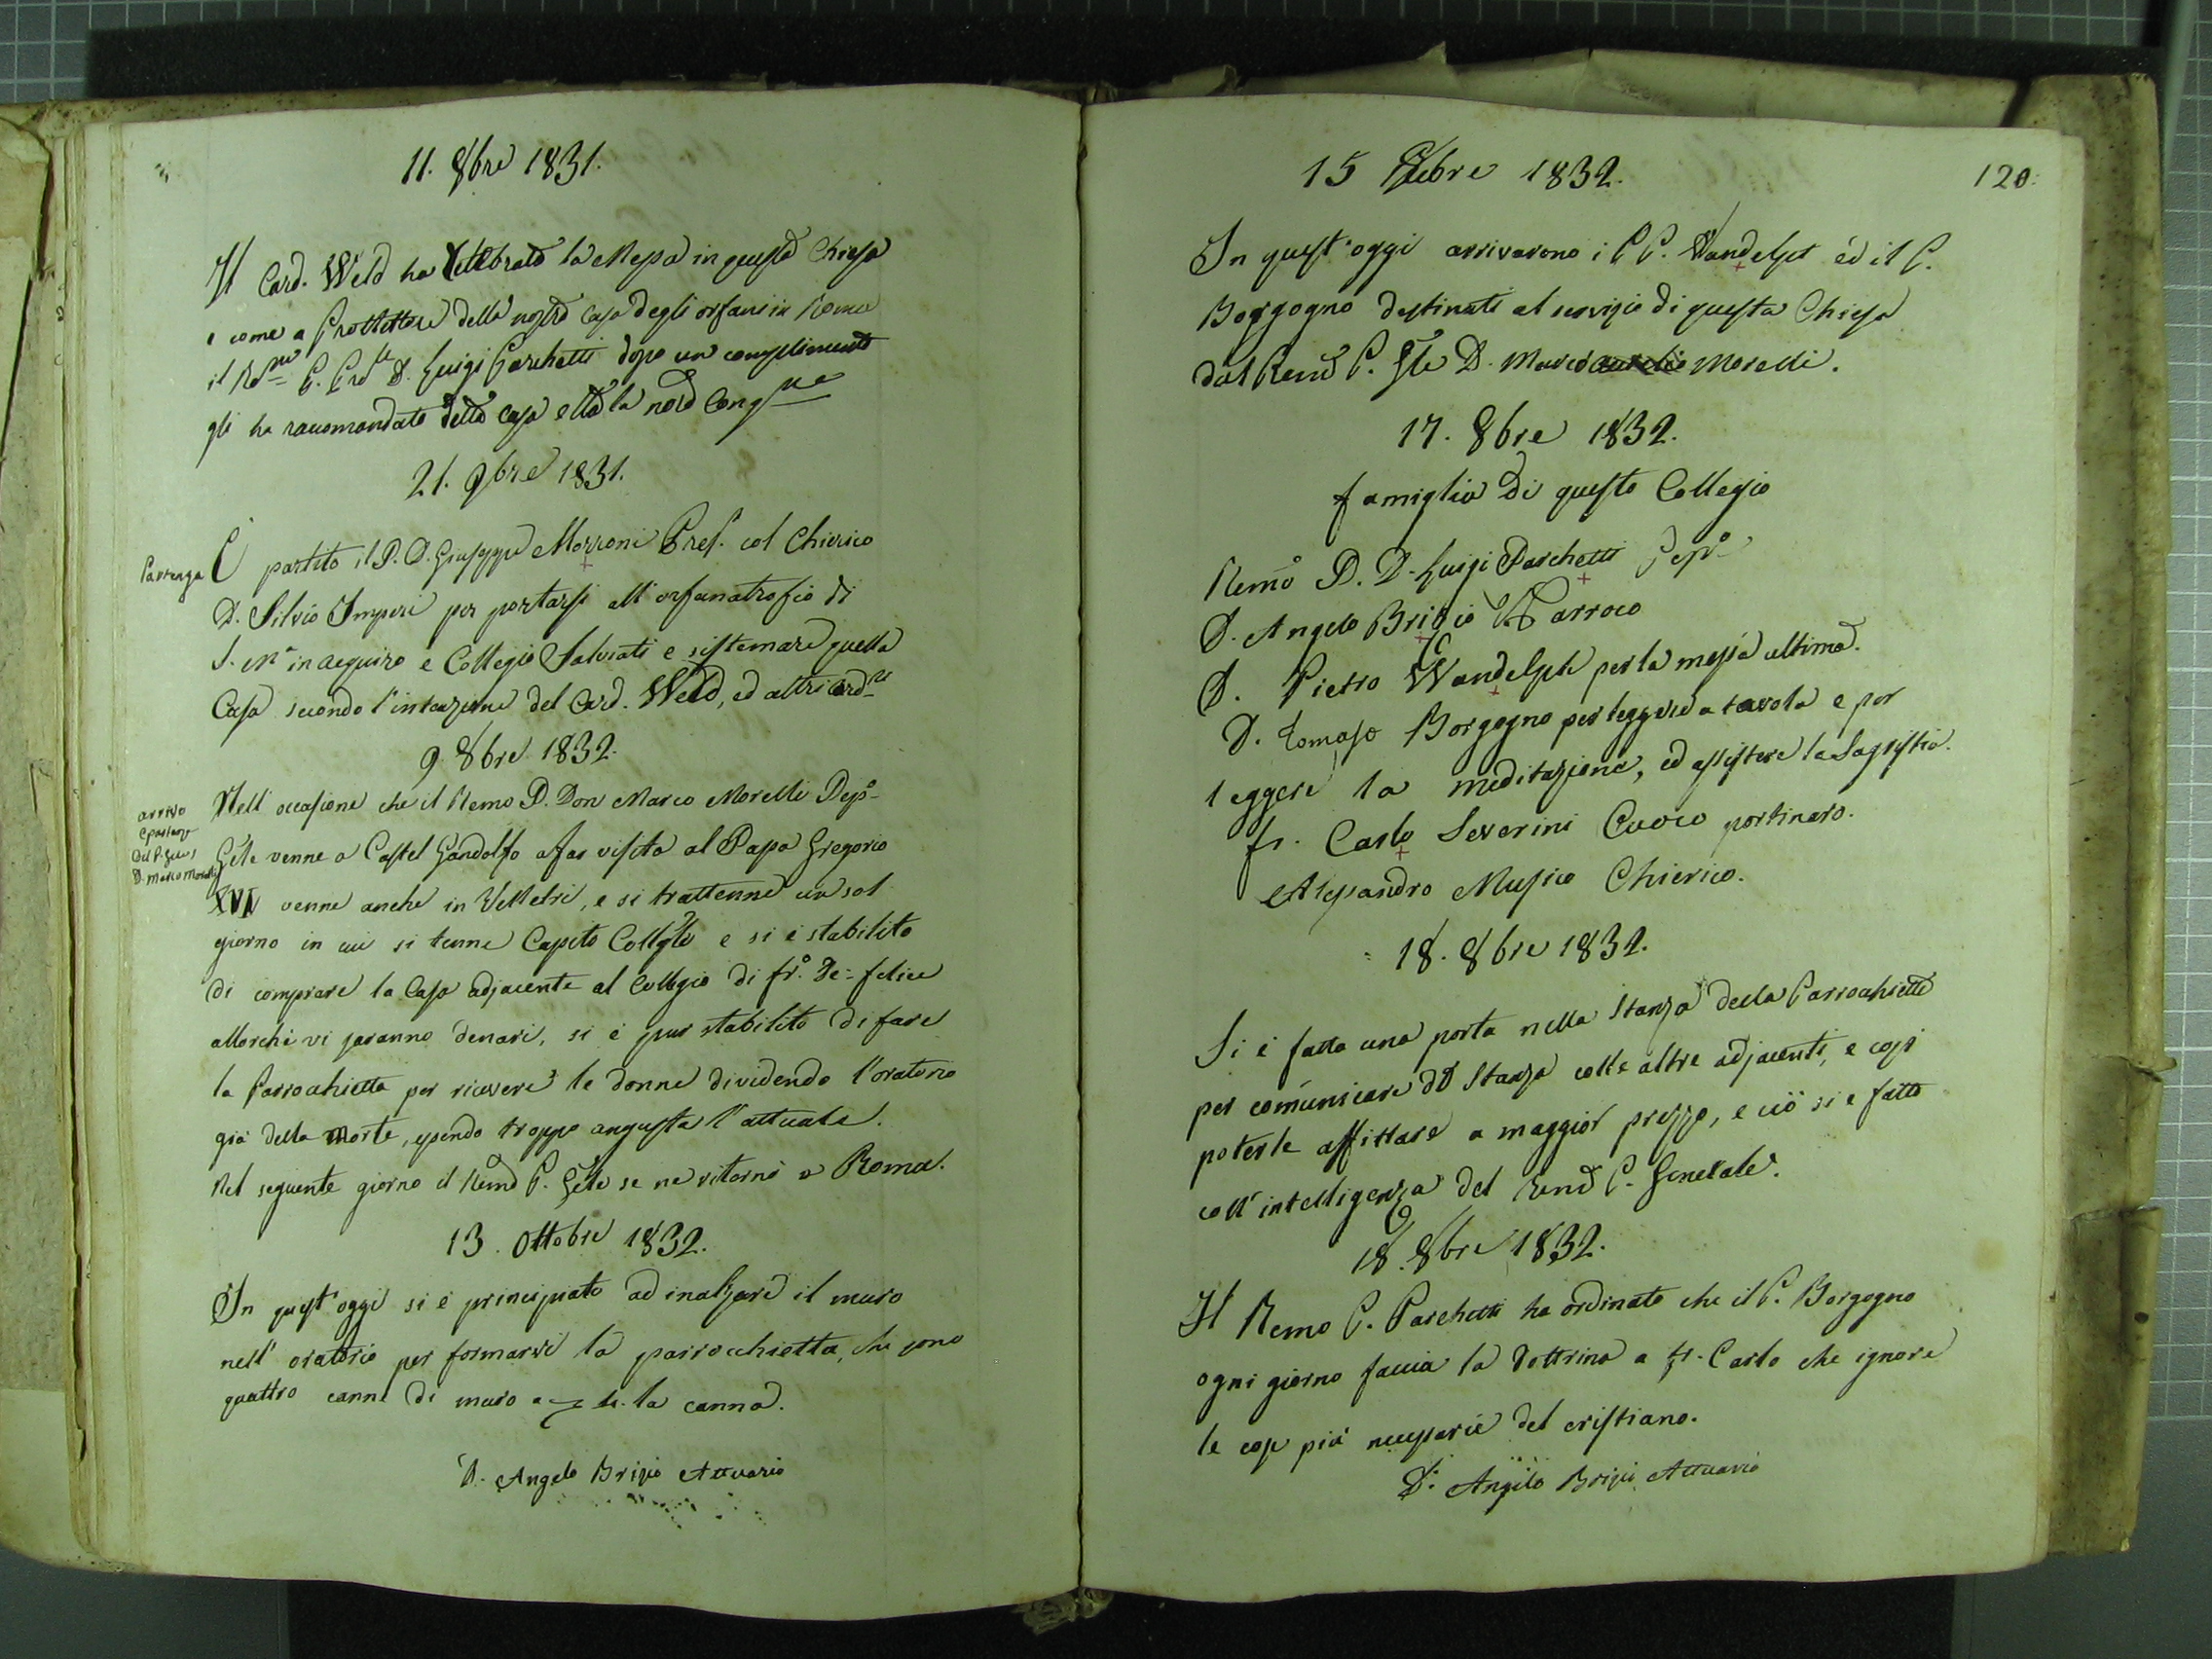 11. 8bre 1831.
Il Card. Weld ha Celebrato la Messa in questa Chiesa
e come a Prottettore della nostra Casa degli orfani in Roma
il Rd.mo P. Prole D. Luigi Parchetti dopo un complimento
gli ha raccomandato detta Casa e tta la nora Congne
21. 9bre 1831.
Partenza
È partito il P. D. Giuseppe Morroni Pres. col Chierico
D. Silvio Imperi per portarsi all'orfanatrofio di
S. Ma in aequiro e Collegio Salviati e sistemare quella
Casa secondo l'intenzione del Card. Weld, ed altri Cardli
9. 8bre 1832.
arrivo
e partenza
del P. Gnle
D. Marco Morelli
Nell'occasione che il Remo P. Don Marco Morelli Prepo
Gnle venne a Castel Gandolfo a far visita al Papa Gregorio
XVI venne anche in Velletri, e si trattenne un sol
giorno in cui si tenne Capito Collgle e si è stabilito
di comprare la Casa adjacente al Collegio di fr. De=felice
allorchè vi saranno denari, si è pur stabilito di fare
la Parrochietta per ricevere le donne dividendo l'oratorio
già della Morte, essendo troppo angusta l'attuale.
Nel seguente giorno il Remo P. Gnle se ne ritornò a Roma.
13. Ottobre 1832.
In quest'oggi si è principiato ad inalzare il muro
nell'oratorio per formarvi la parrocchietta, che sono
quattro canne di muro a la canna.
D. Angelo Brizio Attuario
120.
15 8bre 1832.
In quest'oggi arrivarono i PP. Wandelgst ed il P.
Borgogno destinati al servizio di questa Chiesa
dal Remo P. Gle D. Marco aurelio Morelli.
17. 8bre 1832.
famiglia di questo Collegio
Remo P. D. Luigi Parchetti Prepo
D. Angelo Brizio Parroco
D. Pietro Wandelgst per la messa ultima.
D. Tomaso Borgogno per leggere a tavola e per
leggere la meditazione, ed assistere la Sagristia.
fr. Carlo Severini Cuoco portinaro.
Alessandro Musico Chierico.
18. 8bre 1832.
Si è fatta una porta nella Stanza della Parrochietta
per comunicare da Stanza colle altre adjacenti, e così
poterle affittare a maggior prezzo, e ciò si è fatto
coll'intelligenza del Remo P. Generale.
19. 8bre 1832.
Il Remo P. Parchetti ha ordinato che il P. Borgogno
ogni giorno faccia la dottrina a fr. Carlo che ignora
le cose più necessarie del cristiano.
D. Angelo Brizio Attuario